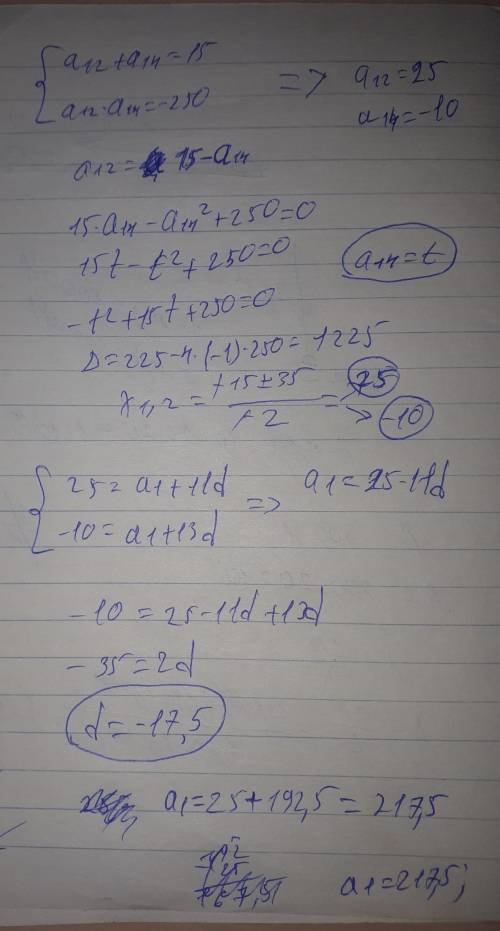 { a12 + a14 = 15
a12 · a14 = -250 => a12 = 25
a14 = -10
a12 = 15 - a14
15 · a14 - a14² + 250 = 0
15t - t² + 250 = 0 a14 = t
-t² + 15t + 250 = 0
D = 225 - 4 · (-1) · 250 = 1225
x1,2 = +15 ± 35 / +2 = 25
-10
{ 25 = a1 + 11d => a1 = 25 - 11d
-10 = a1 + 13d
-10 = 25 - 11d + 13d
-35 = 2d
d = -17,5
a1 = 25 + 192,5 = 217,5
a1 = 217,5;